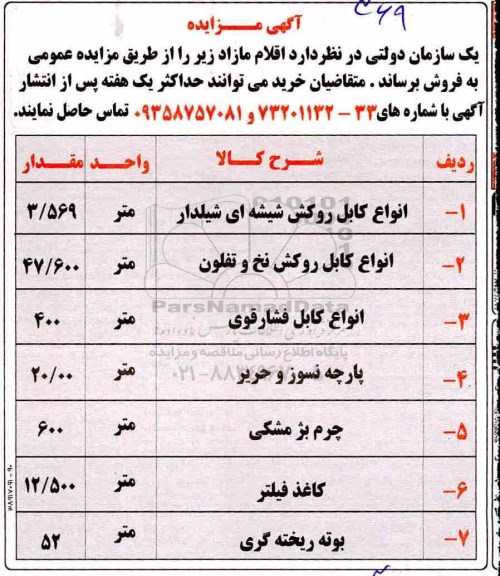 ۲۶۹
آگهی مـــزایده
یک سازمان دولتی در نظر دارد اقلام مازاد زیر را از طریق مزایده عمومی
به فروش برساند . متقاضیان خرید می توانند حداکثر یک هفته پس از انتشار
آگهی با شماره های ۳۳ – ۷۳۲۰۱۱۳۲ و ۰۹۳۵۸۷۵۷۰۸۱ تماس حاصل نمایند.
ردیف شرح کـالا واحـد مقـدار
۱– انواع کابل روکش شیشه ای شیلدار متر ۳/۵۶۹
۲– انواع کابل روکش نخ و تفلون متر ۴۷/۶۰۰
۳– انواع کابل فشارقوی متر ۴۰۰
ParsNamadData
پایگاه اطلاع رسانی مناقصه و مزایده
۴– پارچه نسوز و حریر متر ۲۰/۰۰
۵– چرم بژ مشکی متر ۶۰۰
۶– کاغذ فیلتر متر ۱۲/۵۰۰
۷– بوته ریخته گری متر ۵۲